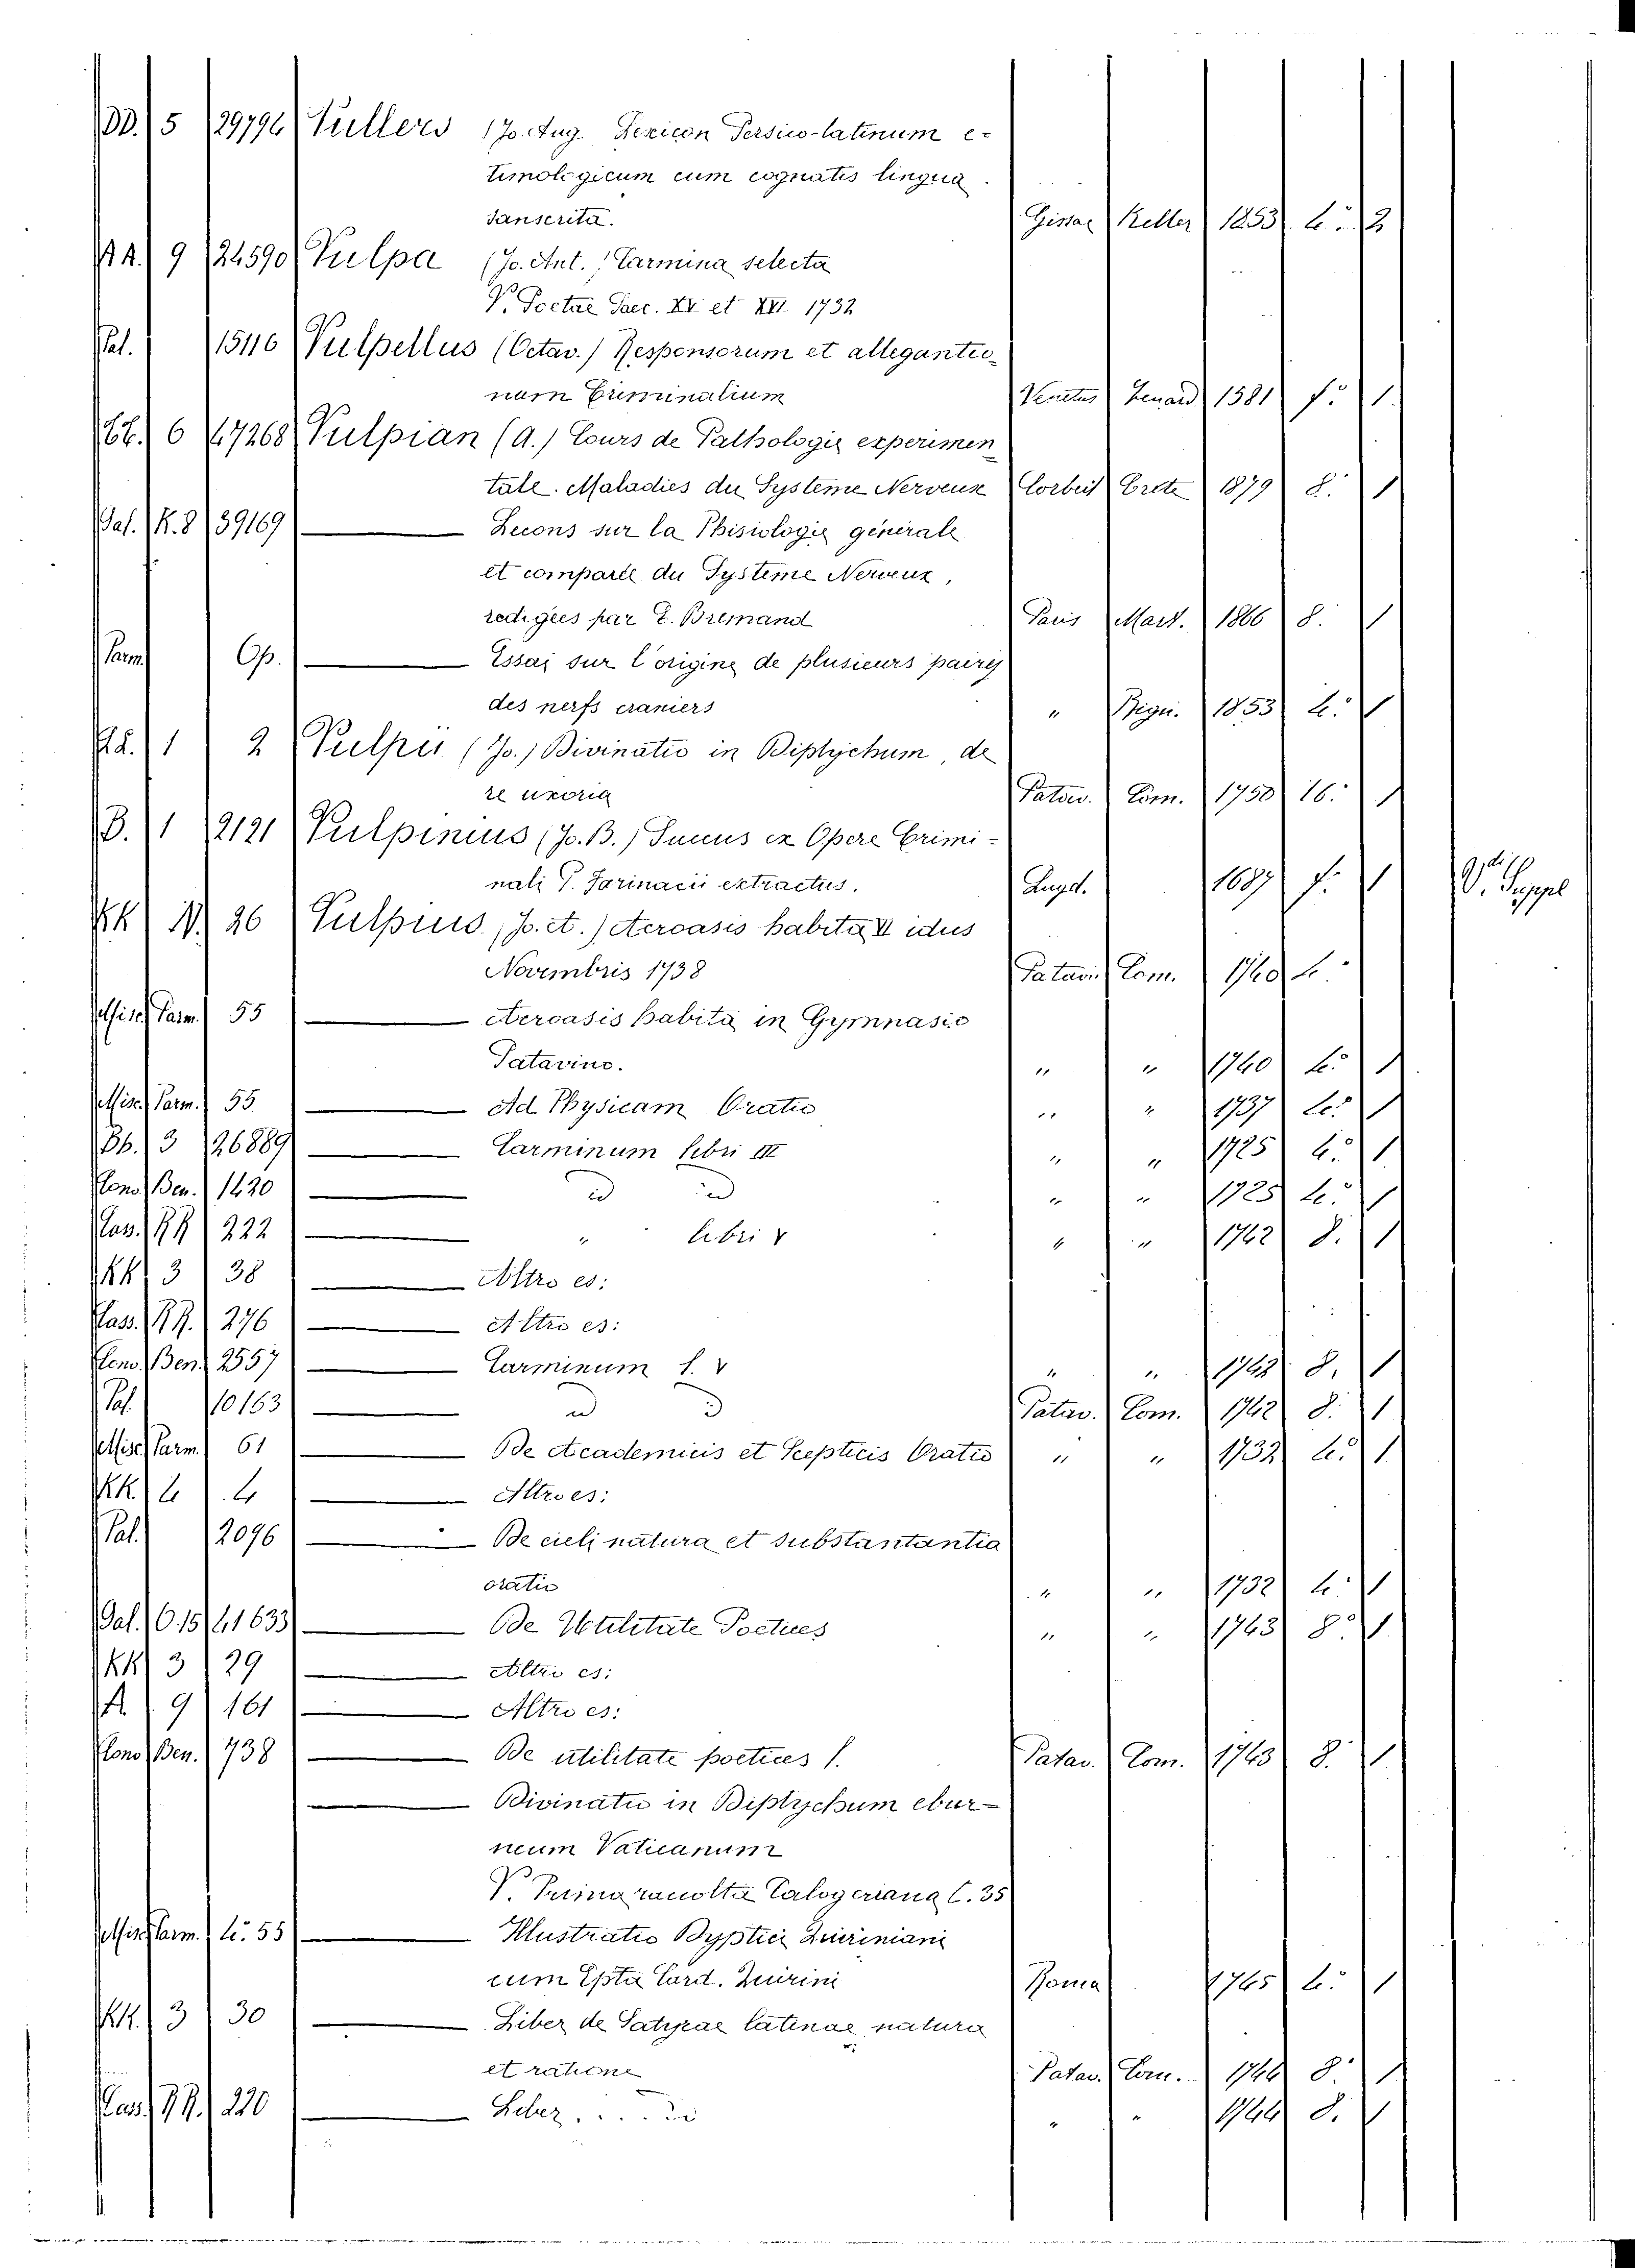 DD. 5 29796 Vullers (Jo. Aug. Lexicon Persico-latinum e-
timologicum cum cognatis lingua
sanscrita. Gissae Keller 1853 4.º 2
9 24590 Vulpa (Jo. Ant.) Carmina selecta
V. Poetae Saec. XV et XVI 1732
Pal. 15116 Vulpellus (Octav.) Responsorum et allegantio-
num Criminalium Venetus Zenard. 1581 f.º 1.
6 47268 Vulpian (A.) Cours de Pathologie experimen
tale. Maladies du Systeme Nerveuse Corbeil Crete 1879 8. 1
Pal. R.8 39169 Lecons sur la Phisiologie générale
et comparée du Systeme Nerveux,
redigées par E. Bremand Paris Mart. 1866 8. 1
Parm. Op. Essai sur l'origine de plusieurs paires
des nerfs craniers " Rign. 1853 4. 1
1 2 Vulpii (Jo.) Divinatio in Diptychum, de
re uxoria Patav. Com. 1750 16. 1
B. 1 2121 Vulpinius (Jo. B.) Succus ex Opere Crimi-
nali P. Farinacii extractus. Lugd. 1687 f. 1 V. Suppl
KK N. 26 Vulpius (Jo. A.) Acroasis habita II idus
Novembris 1738 Patavii Com. 1740 4.
Misc. Parm. 55 Acroasis habita in Gymnasio
Patavino. " " 1740 4.º 1
Misc. Parm. 55 Ad Physicam Oratio " " 1737 4.º 1
Bb. 3 26889 Carminum libri III " " 1725 4.º 1
Cono. Ben. 1420 id id " " 1725 4.º 1
Cas. RR 222 " libri V " " 1742 8. 1
KK 3 38 Altro es:
Cass. RR. 276 Altro es:
Cono. Ben. 2557 Carminum l. V " " 1742 8. 1
Pal. 10163 id id Patav. Com. 1742 8. 1
Misc. Parm. 61 De Academicis et Scepticis Oratio " " 1732 4.º 1
KK. 4 4 Altro es:
Pal. 2096 De cieli natura et substantantia
oratio " " 1732 4. 1
Pal. O.15 41633 De Utilitate Poetices " " 1743 8.º 1
KK 3 29 Altro es:
A 9 161 Altro es:
Cono. Ben. 738 De utilitate poetices l. Patav. Com. 1743 8. 1
Divinatio in Diptychum ebur-
neum Vaticanum
V. Prima racolta Calogeriana t. 35
Misc. Parm. 4.º 55 Illustratio Dyptici Quiriniani
cum Epta Card. Quirini Roma 1745 4. 1
KK. 3 30 Liber de Satyrae latinae natura
et ratione Patav. Com. 1744 8. 1
Cass. RR. 220 Liber.... id " " 1744 8. 1